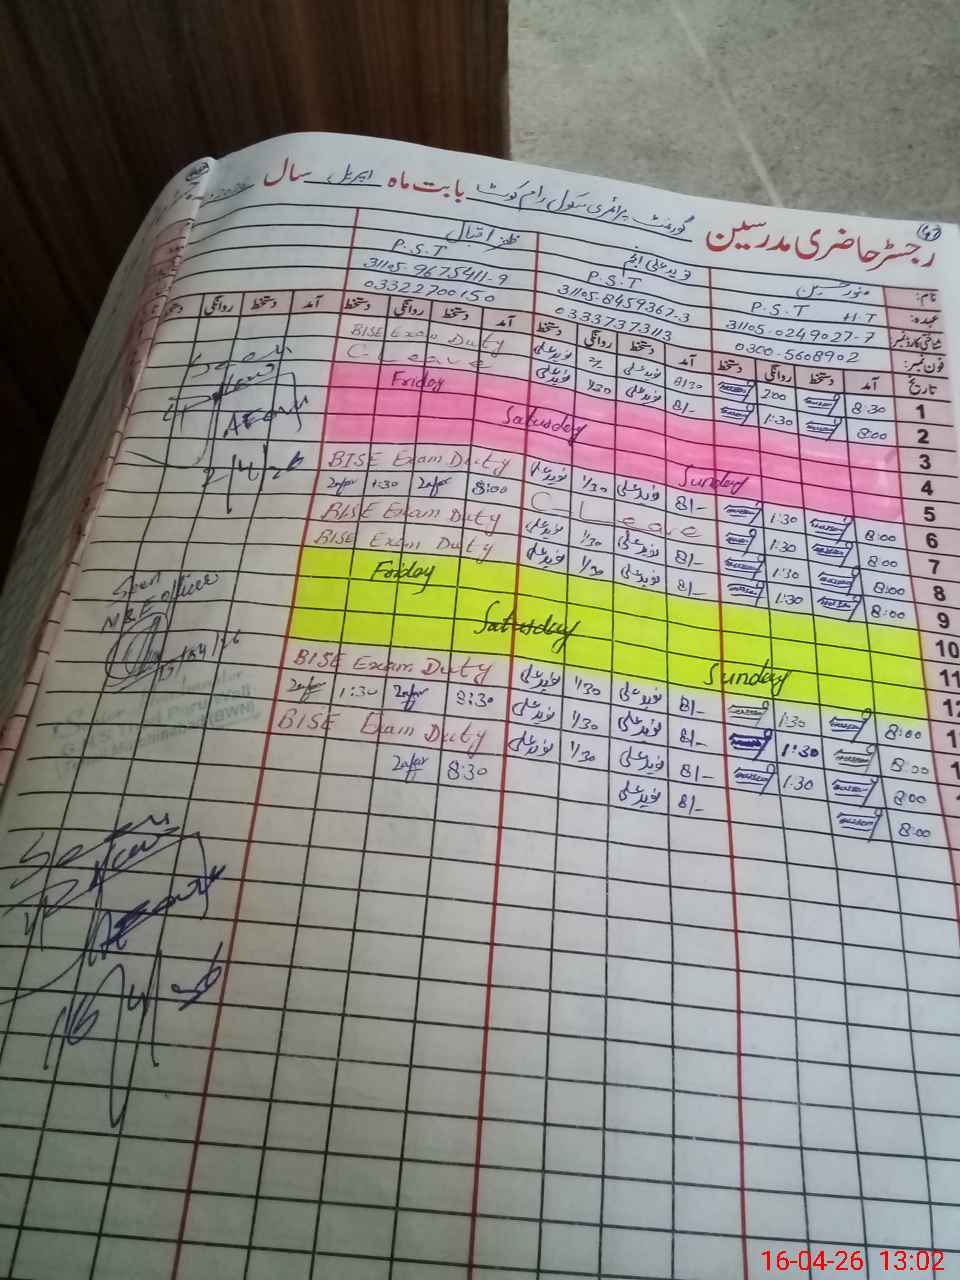 رجسٹر حاضری مدرسین گورنمنٹ پرائمری سکول رام کوٹ بابت ماہ اپریل سال 2026
نام: منور حسین نوید علی انجم ظفر اقبال
عہدہ: H.T P.S.T P.S.T P.S.T
شناختی کارڈ نمبر: 31105-0249027-7 31105-8459367-3 31105-9675411-9
فون نمبر: 0300-5608902 03337373113 03322700150
تاریخ آمد دستخط روانگی دستخط آمد دستخط روانگی دستخط آمد دستخط روانگی دستخط آمد دستخط روانگی دستخط
1 8:30 200 8/30 نوید علی نوید علی BISE Exam Duty
2 8:00 1:30 8/- نوید علی 1/30 نوید علی C Leave
3 Friday
4 Saturday
5 Sunday
6 8:00 1:30 8/- نوید علی 1/30 نوید علی BISE Exam Duty
7 8:00 1:30 C-Leave 8:00 ظفر 1:30 ظفر
8 8:00 1:30 8/- نوید علی 1/30 نوید علی BISE Exam Duty
9 8:00 1:30 8/- نوید علی 1/30 نوید علی BISE Exam Duty
10 Friday
11 Saturday
Sunday
8:00 1:30 8/- نوید علی 1/30 نوید علی BISE Exam Duty
8:00 1:30 8/- نوید علی 1/30 نوید علی 8:30 ظفر 1:30 ظفر
8:00 1:30 8/- نوید علی 1/30 نوید علی BISE Exam Duty
8:00 8/- نوید علی 8:30 ظفر
Seen
AEO
2/4/26
Seen
M&E officer
Seen
16/4/26
16-04-26 13:02